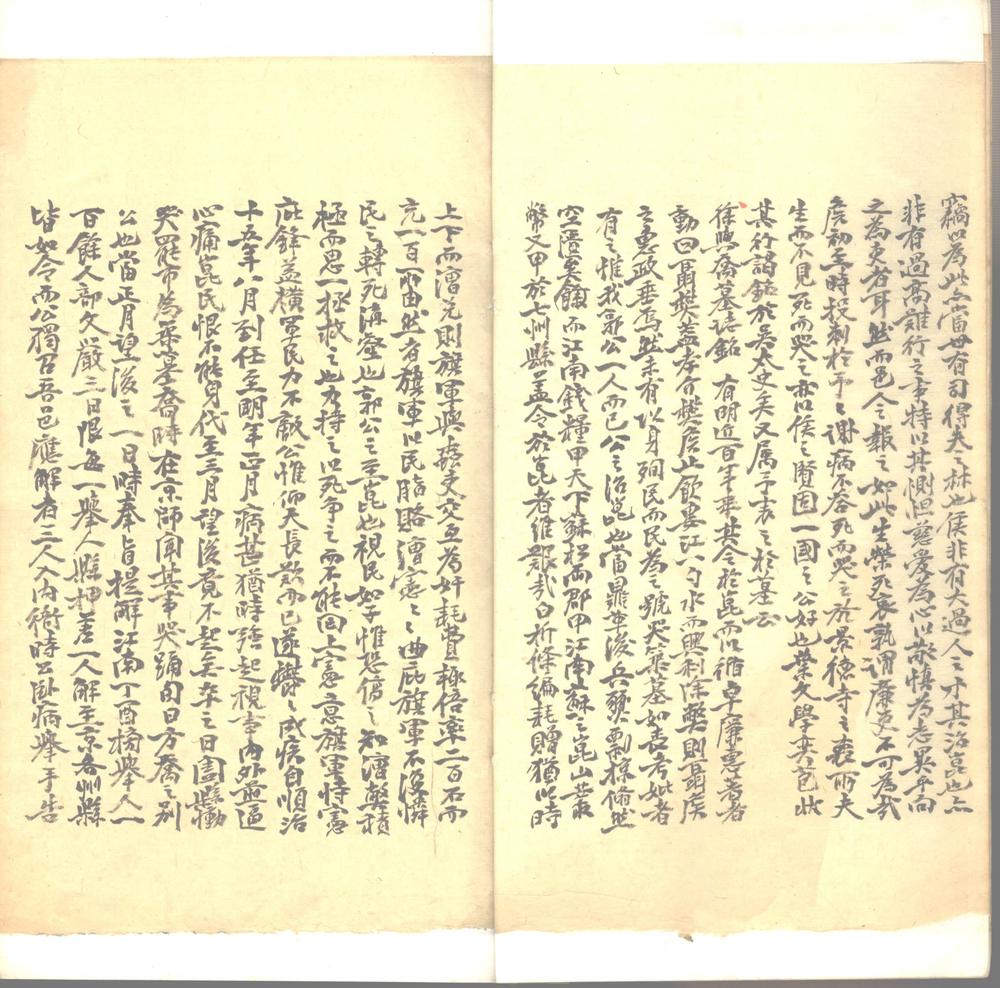 竊以為此亦當世有司得失之林也侯非有大過人之才其治崑也亦
非有過高難行之事特以其惻怛慈愛為心以敬慎為志異乎向
之為吏者耳然而邑人之報之如此生榮死哀孰謂廉吏不可為哉
侯初至時投刺於予予謝病不答死而哭之於景德寺之喪所夫
生而不見死而哭之亦以侯之賢固一國之公好也葉文學奕苞狀
其行謁銘於吳太史矣又属予表之於墓云
徐興喬墓誌銘 有明近百年來其令於崑而以循卓廉惠著者
動曰聶樊蓋孝介樊侯止飲婁江一勺水而興利除弊則聶侯
之惠政垂焉然未有以身殉民而民為之號哭築墓如喪考妣者
有之惟我郭公一人而已公之治崑也當鼎革後兵燹剽掠脩然
空隍莫饘而江南錢糧甲天下蘇松兩郡甲江南蘇之崑山荒
幣又甲於七州縣盂令於崑者維艱哉白折條編耗贈猶以時
上下而漕兌則旗軍與蠹吏交互為奸耗費輒倍率二百石而
充一百所由然者旗軍以民脂賂漕憲之曲庇旗軍不復憐
民之轉死溝壑也郭公之蒞崑也視民如子惟恐傷之知漕弊積
極而思一極救之也乃持之以死争之而不能回上憲意旗軍恃憲
庇鋒益橫軍民力不敵公惟仰天長歎而已遂鬱鬱成疾自順治
十五年八月到任至明年正月病甚猶時強起視事内外並逼
心痛崑民恨不能身代至三月望後竟不起矣卒之日闔縣慟
哭罷市為築墓喬時在京師聞其事哭踊旬日方喬之別
公也當正月望後之一日時奉旨提解江南丁酉榜舉人一
百餘人部文嚴三日限每一舉人縣押差一人解至京各州縣
皆如令而公獨召吾邑應解者三人入内衙時公卧病舉手告